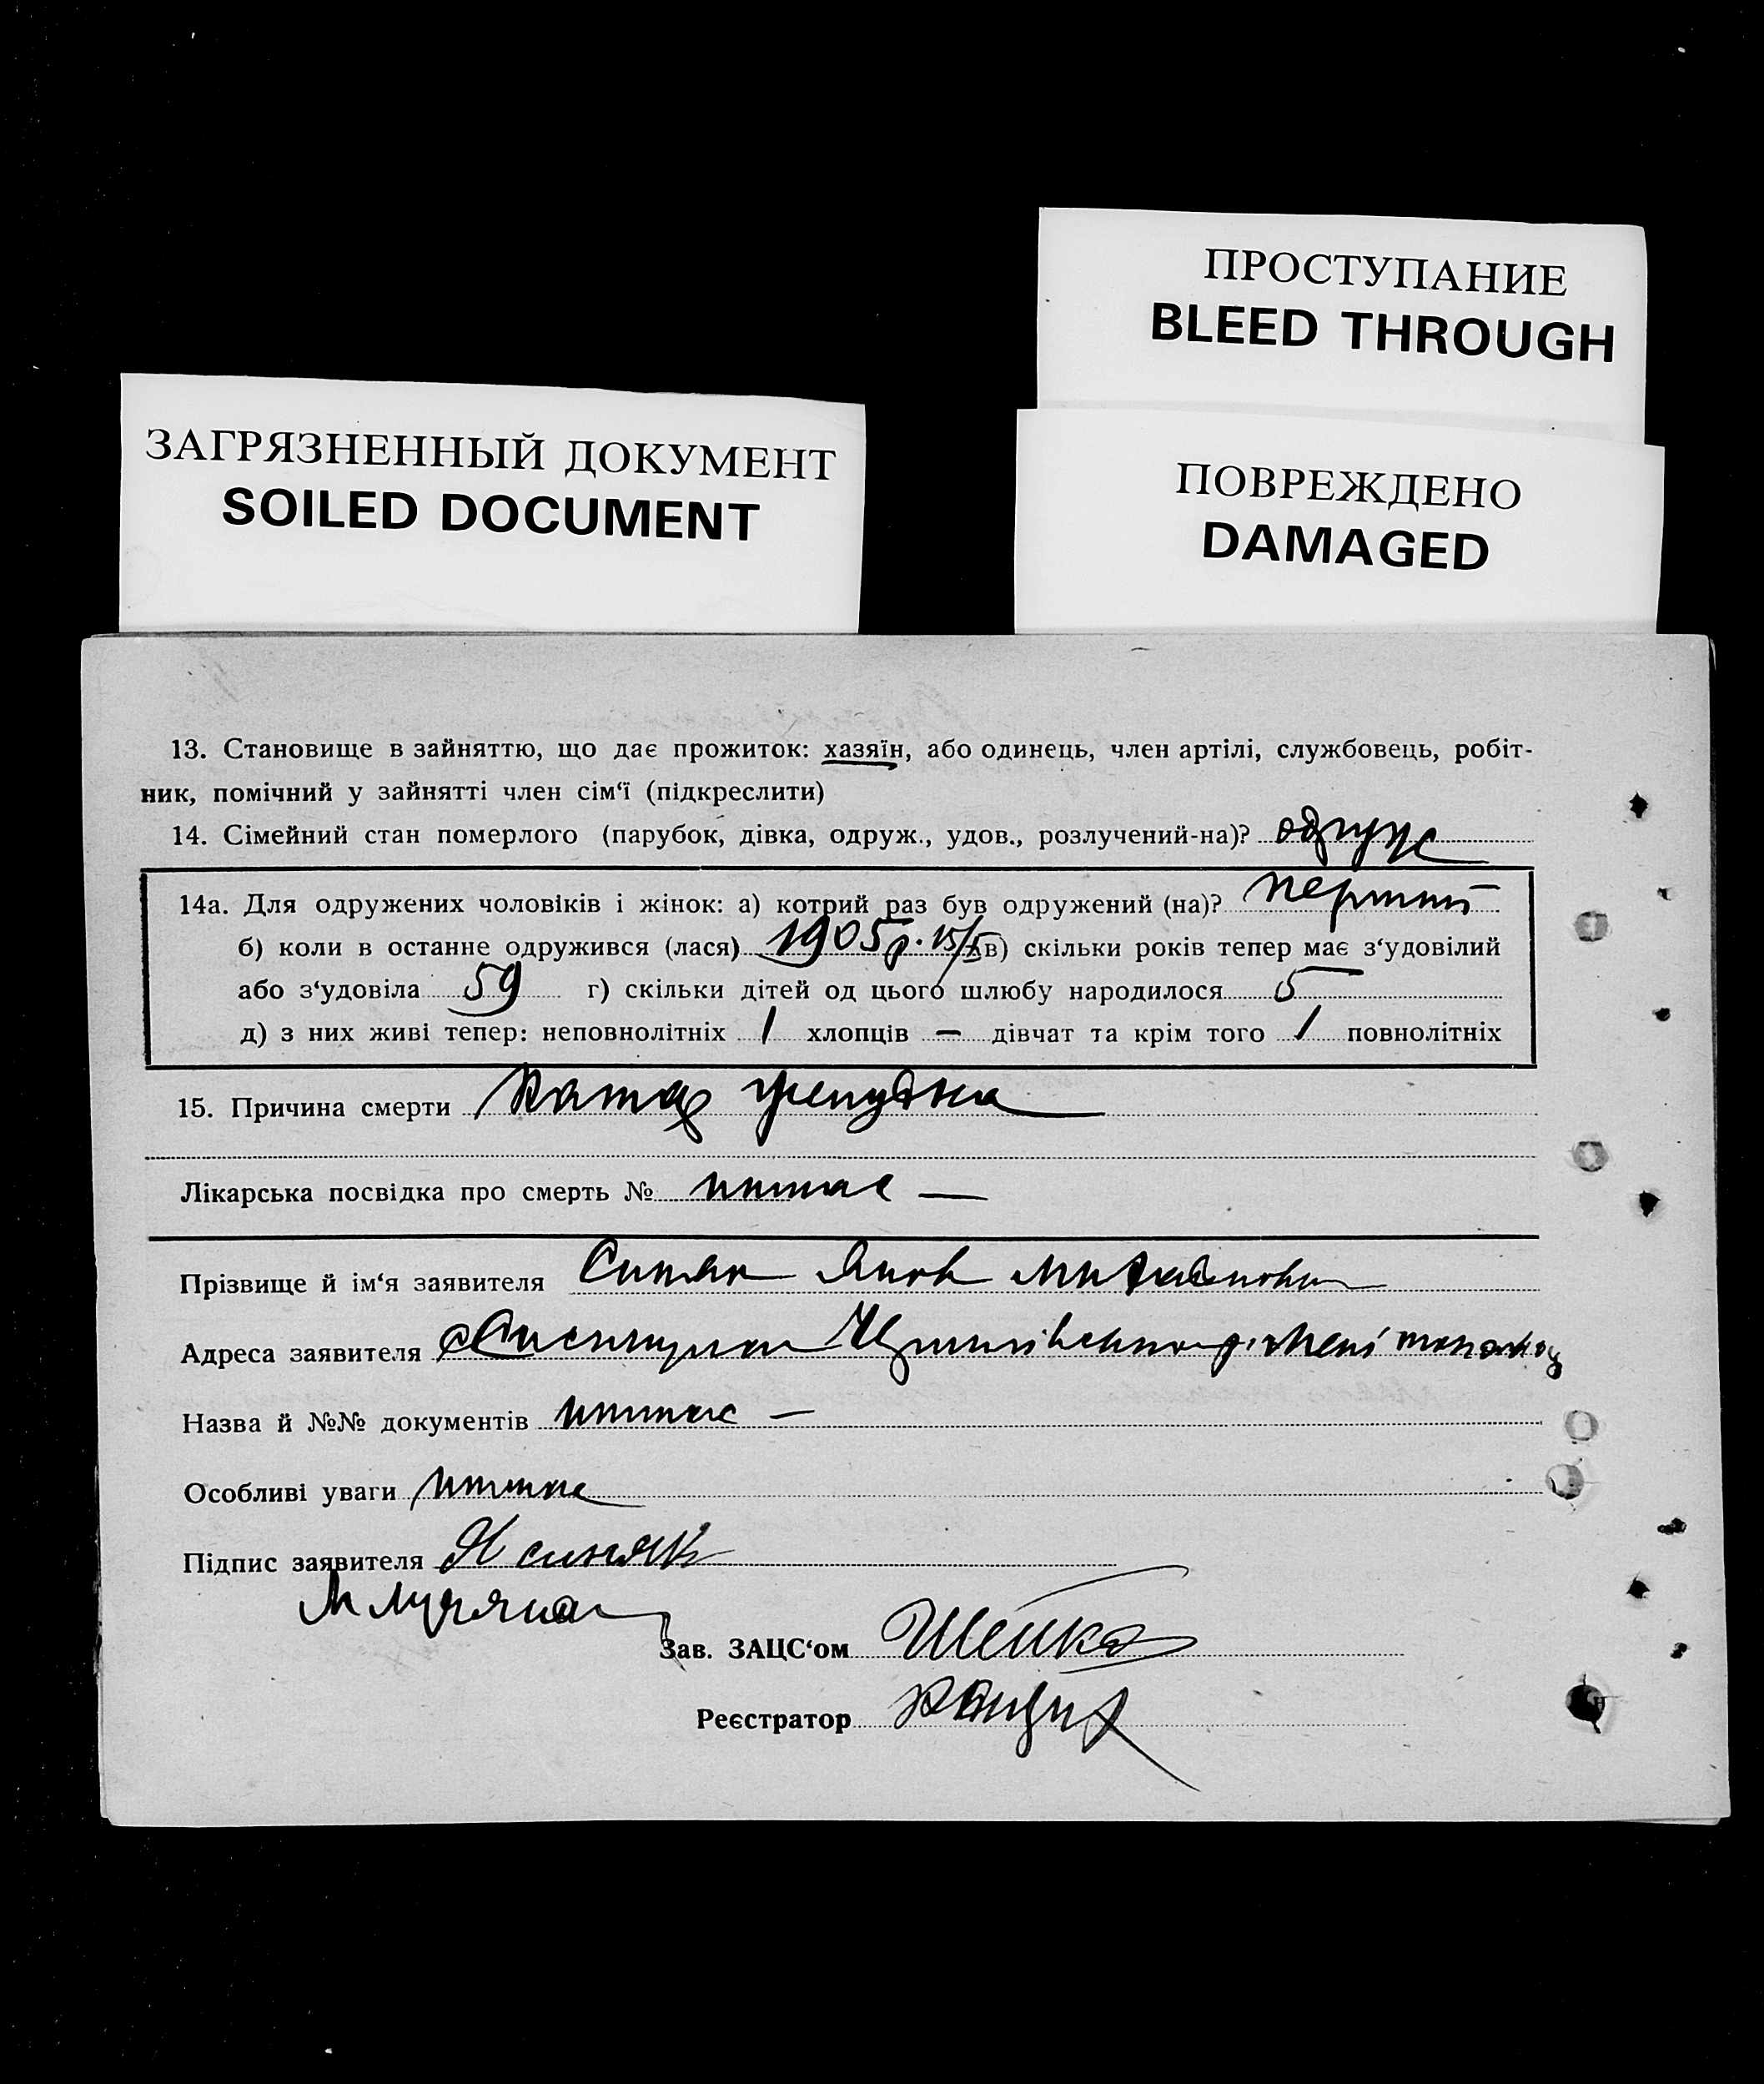 ПРОСТУПАНИЕ
BLEED THROUGH
ЗАГРЯЗНЕННЫЙ ДОКУМЕНТ
SOILED DOCUMENT
ПОВРЕЖДЕНО
DAMAGED
13. Становище в зайняттю, що дає прожиток: хазяїн, або одинець, член артілі, службовець, робіт-
ник, помічний у зайнятті член сім‘ї (підкреслити)
14. Сімейний стан померлого (парубок, дівка, одруж., удов., розлучений-на)? одруж
14а. Для одружених чоловіків і жінок: а) котрий раз був одружений (на)? перший
б) коли в останне одружився (лася) 1905 р. 15/X в) скільки років тепер має з‘удовілий
або з‘удовіла 59 г) скільки дітей од цього шлюбу народилося 5
д) з них живі тепер: неповнолітніх 1 хлопців — дівчат та крім того 1 повнолітніх
15. Причина смерти Катар
Лікарська посвідка про смерть № немає —
Прізвище й ім‘я заявителя Синяк Яков
Адреса заявителя
Назва й №№ документів немає —
Особливі уваги немає
Підпис заявителя Я синяк
Зав. ЗАЦС‘ом
Реєстратор